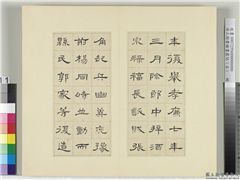 年復舉孝廉七年
三月除郎中拜酒
泉祿福長訞賊張
角起兵幽冀兗豫
荊楊同時並動而
縣民郭家等復造